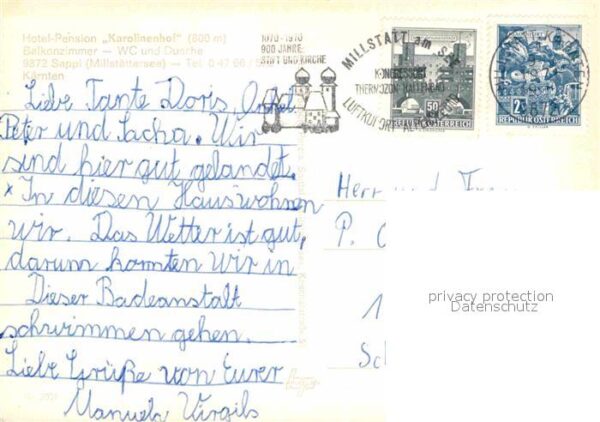 Hotel-Pension „Karolinenhof" (800 m)
Balkonzimmer — WC und Dusche
9872 Sappl (Millstättersee) — Tel. 0 47 66 /
Kärnten
1070-1970
900 JAHRE
STIFT UND KIRCHE
MILLSTATT am See
KONGRESSORT
THERMOZON HALLENBAD
LUFTKURORT
50
REPUBLIK ÖSTERREICH
REPUBLIK ÖSTERREICH
Liebe Tante Doris, Onkel
Peter und Sacha. Wir
sind hier gut gelandet.
x In diesen Haus wohnen
wir. Das Wetter ist gut,
darum konnten wir in
Dieser Badeanstalt
schwimmen gehen.
Liebe Grüße von Eurer
Manuela Virgils
Herr und
P.
1
Sc
privacy protection
Datenschutz